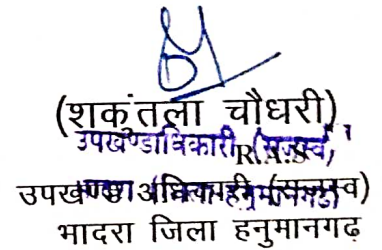 (शकुंतला चौधरी)
उपखण्डाधिकारी (राजस्व)
R.A.S
उपखण्ड अधिकारी (राजस्व)
भादरा जिला हनुमानगढ़